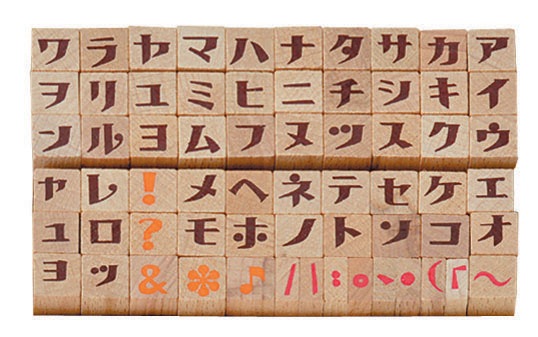 アイウエオ〜
カキクケコ(「
サシスセソ、•
タチツテト:。
ナニヌネノ//
ハヒフヘホ♪
マミムメモ✽
ヤユヨ!?&
ラリルレロッ
ワヲンャュョ